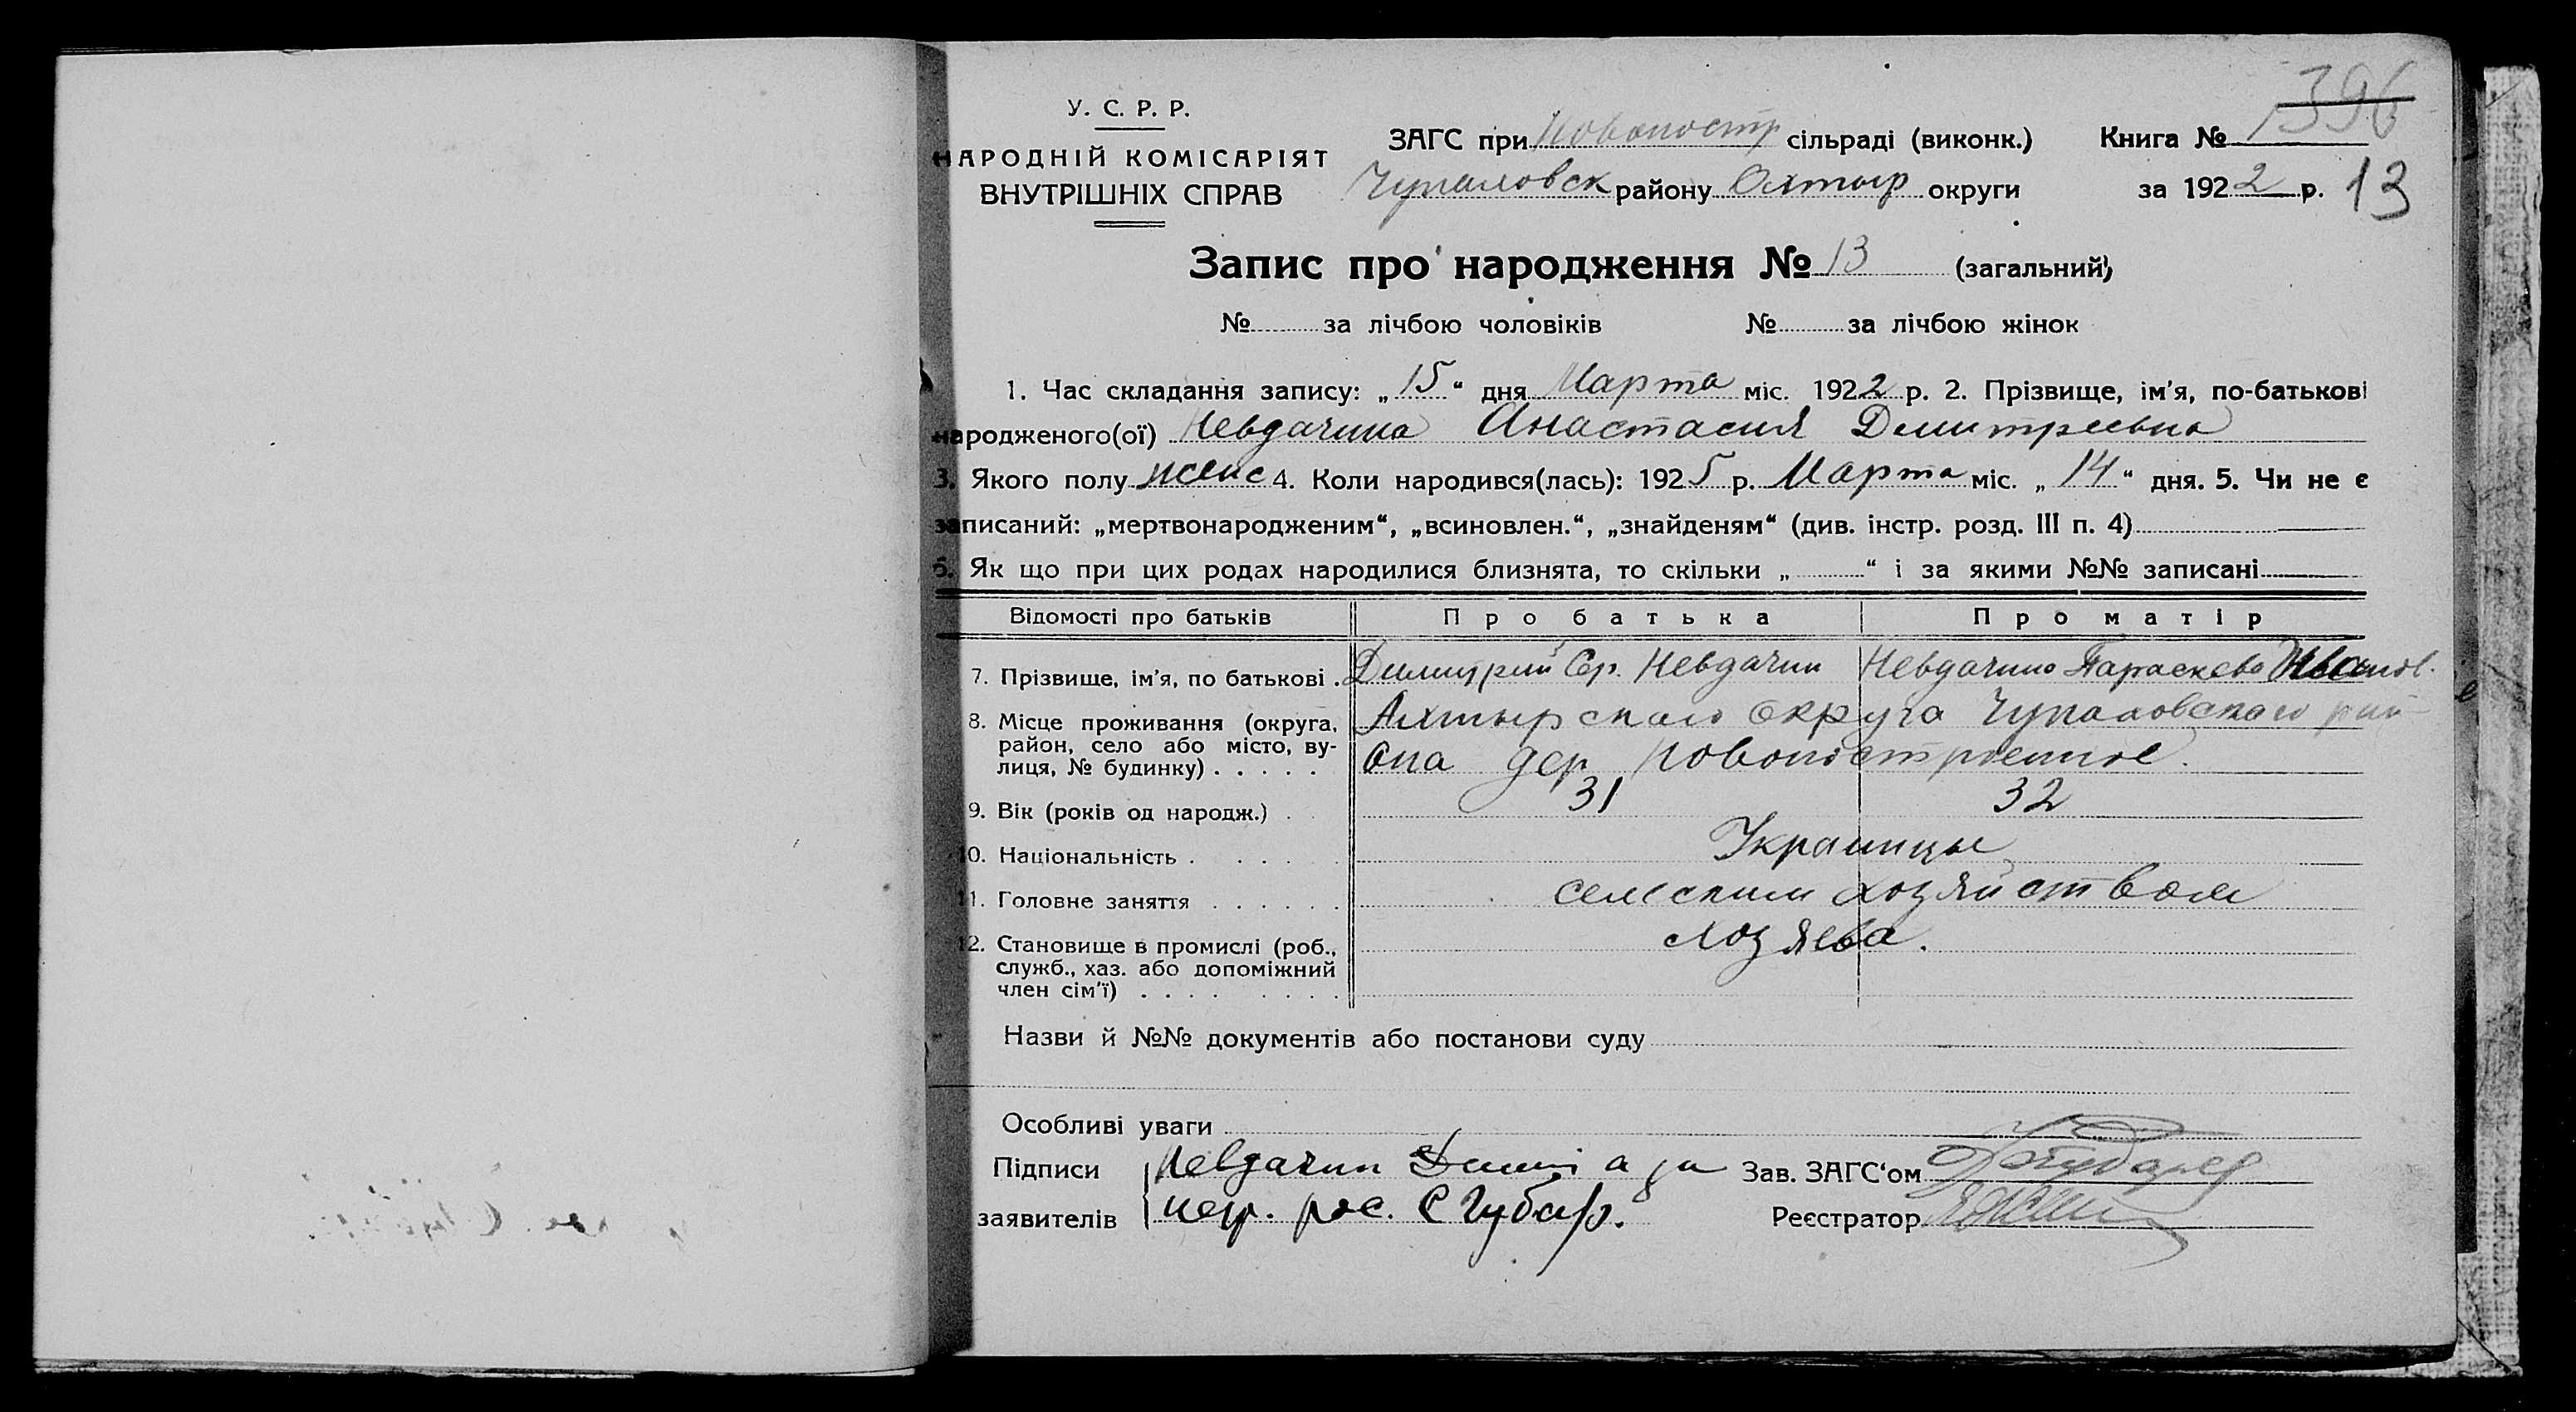 396
У. С. Р. Р.
НАРОДНІЙ КОМІСАРІЯТ
ВНУТРІШНІХ СПРАВ
ЗАГС при Новопостр сільраді (виконк.) Книга №
Чупаловск району Охтыр округи за 1922 р. 13
Запис про народження № 13 (загальний)
№ за лічбою чоловіків № за лічбою жінок
1. Час складання запису: „15“ дня Марта міс. 1922 р. 2. Прізвище, ім'я, по-батькові
народженого(ої) Невдачина Анастасия Димитриевна
3. Якого полу женс 4. Коли народився(лась): 1925 р. Марта міс. „14“ дня. 5. Чи не є
записаний: „мертвонародженим“, „всиновлен.“, „знайденям“ (див. інстр. розд. III п. 4)
6. Як що при цих родах народилися близнята, то скільки „ “ і за якими №№ записані
Відомості про батьків Про батька Про матір
7. Прізвище, ім'я, по батькові . Димитрий Ср. Невдачин Невдачина Параскева Иванов.
8. Місце проживання (округа, район, село або місто, вулиця, № будинку) . . . . . Ахтырскаго округа Чупаховскаго рай-
она дер Новопостроенное.
9. Вік (років од народж.) . 31 32
10. Національність . . . . . Украинцы
11. Головне заняття . . . . . . сельским хозяйством
12. Становище в промислі (роб., служб., хаз. або допоміжний член сім'ї) . . . . . . . . хозяева.
Назви й №№ документів або постанови суду
Особливі уваги
Підписи Невдачин а за Зав. ЗАГС'ом
заявителів негр. рос. С Губар. Реєстратор